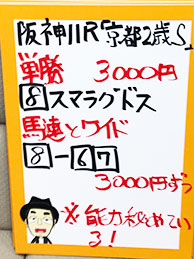 阪神11R「京都2歳S」
単勝 3000円
8スマラグドス
馬連とワイド
8-67
3000円ずつ
※能力秘めている!